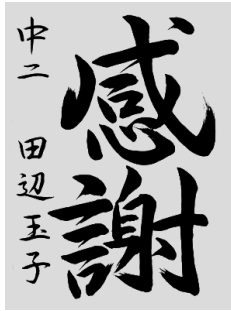 感謝
中二 田辺玉子